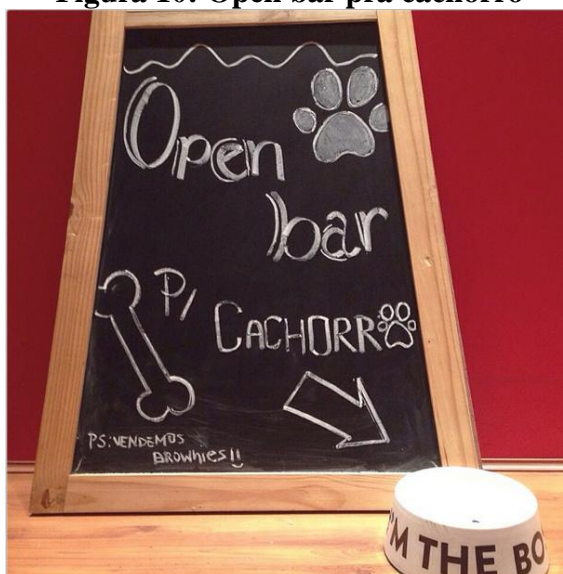 Figura 10: Open bar pra cachorro
Open
bar
P/
CACHORRO
PS: VENDEMOS
BROWNIES!!
I'M THE BO